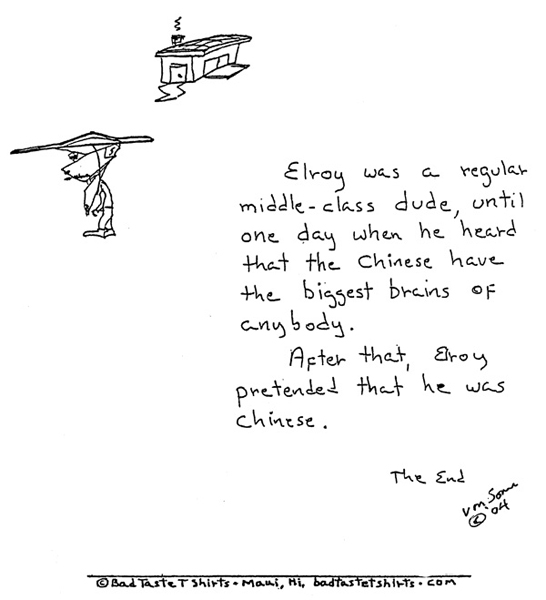 Elroy was a regular
middle-class dude, until
one day when he heard
that the Chinese have
the biggest brains of
anybody.
After that, Elroy
pretended that he was
Chinese.
The End
V.M.
© '04
© Bad Taste T Shirts - Maui, Hi. badtastetshirts.com